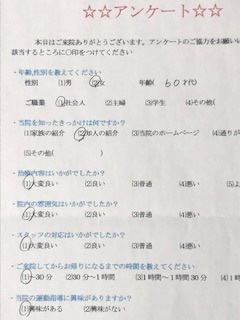 ☆☆アンケート☆☆
本日はご来院ありがとうございます。アンケートのご協力をお願い
該当するところに○印をつけてください
・年齢,性別を教えてください
性別 (1)男 (2)女 年齢( 60才代)
ご職業 (1)社会人 (2)主婦 (3)学生 (4)その他(
・当院を知ったきっかけは何ですか?
(1)家族の紹介 (2)知人の紹介 (3)当院のホームページ (4)通りが
(5)その他( )
・治療内容はいかがでしたか?
(1)大変良い (2)良い (3)普通 (4)悪い
・院内の雰囲気はいかがでしたか?
(1)大変良い (2)良い (3)普通 (4)悪い
・スタッフの対応はいかがでしたか?
(1)大変良い (2)良い (3)普通 (4)悪い
・ご来院してからお帰りになるまでの時間を教えてください
(1)~30分 (2)30分~1時間 (3)1時間~1時間30分 (4)1時
・当院の運動指導に興味がありますか?
(1)興味がある (2)興味がない